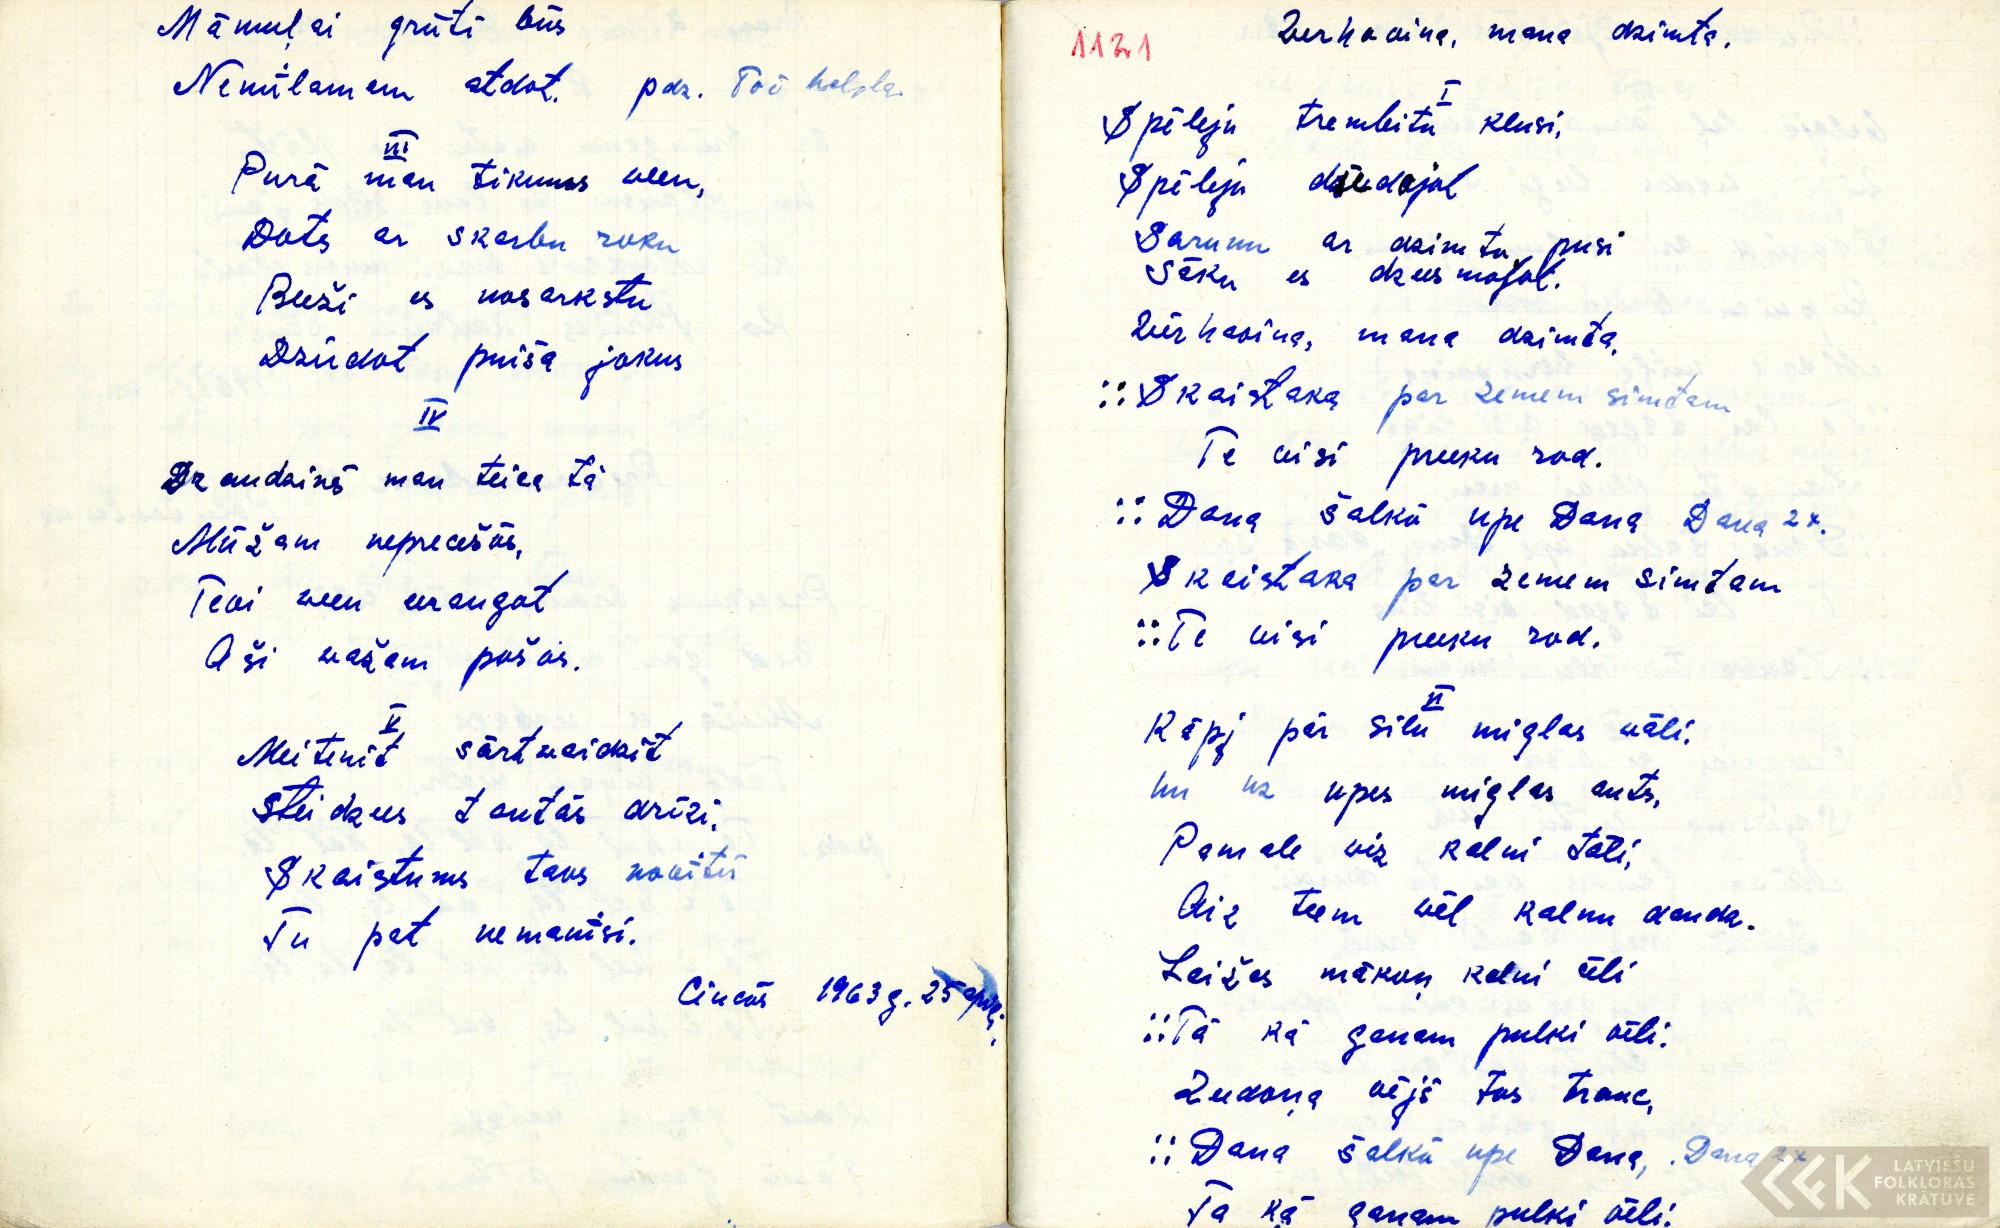 Māmuļai grūti būs
Nemīlamam atdot. pdz.
III
Purā man tikums ween,
Dots ar skarbu roku
Beeži es nosarkstu
Dzirdot puiša jokus
IV
Draudziņš man teica tā
Mūžam neprecēšos,
Tevi ween eerangot
Aši važam pošos.
V
Meitenīt sārtvaidzīt
Steidzees tautās drīzi.
Skaistums tavs novītīs
Tu pat nemanīsi.
Cincās 1963 g. 25 aprīlī,
1121
Verhovina, mana dzimtā.
I
Spēlēju trembitu klusi,
Spēlēju dziedājot
Sarunu ar dzimto pusi
Sāku es dzeesmojot.
Verhovina, mana dzimtā,
:: Skaistākā par zemem simtam
Te visi preeku rod.
:: Dana šalko upe Dana Dana 2x.
Skaistaka par zemem simtam
:: Te visi preeku rod.
II
Kāpj pār silu miglas vāli.
un uz upes miglas auts,
Pamale viz kalni tāli,
Aiz teem vēl kalnu daudz.
Laižas mākoņ kalni zili
:: Tā kā ganam pulki vēli.
Ziedoņa vējš tos trauc,
:: Dana šalko upe Dana, Dana 2x
Ta kā ganam pulki vēli.
LATVIEŠU
FOLKLORAS
KRĀTUVE